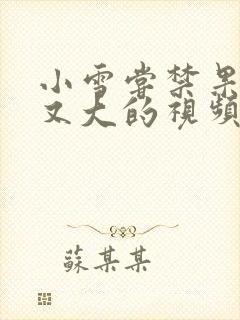 小雪嘗禁果
又大的視頻
蘇某某